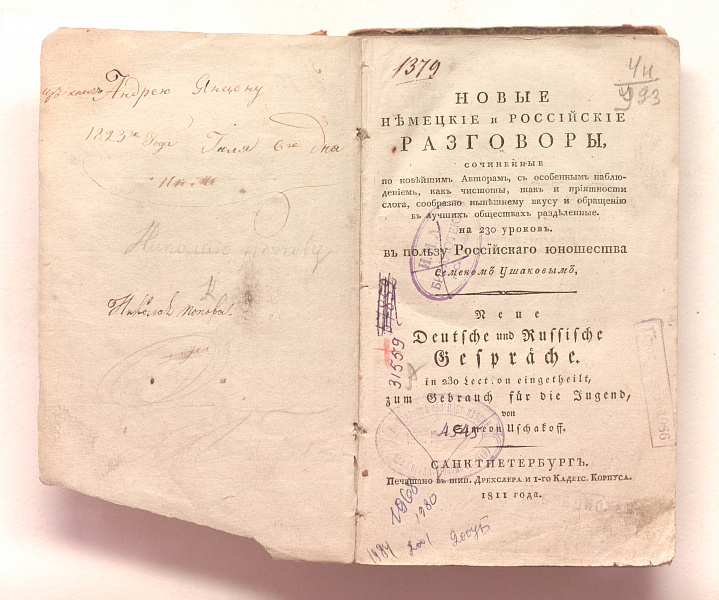 Андрею Янцону
1825 года Іюля 6го дня
Николаю Попову
Николая Попова
1379
Чи
У93
НОВЫЕ
НѢМЕЦКІЕ и РОССІЙСКІЕ
РАЗГОВОРЫ,
СОЧИНЕННЫЕ
по новѣйшимъ Авторамъ, съ особеннымъ наблю-
деніемъ, какъ чистоты, такъ и пріятности
слога, сообразно нынѣшнему вкусу и обращенію
въ лучшихъ обществахъ раздѣленные.
на 230 уроковъ.
въ пользу Россійскаго юношества
Семеномъ Ушаковымъ,
Neue
Deutsche und Russische
Gespräche.
in 230 Lection eingetheilt,
zum Gebrauch für die Jugend,
von
Simeon Uschakoff.
31559
4545
САНКТПЕТЕРБУРГЪ.
Печатано въ тип. Дрехслера и 1-го Кадетс. Корпуса.
1811 года.
1968
1980
1984
2001